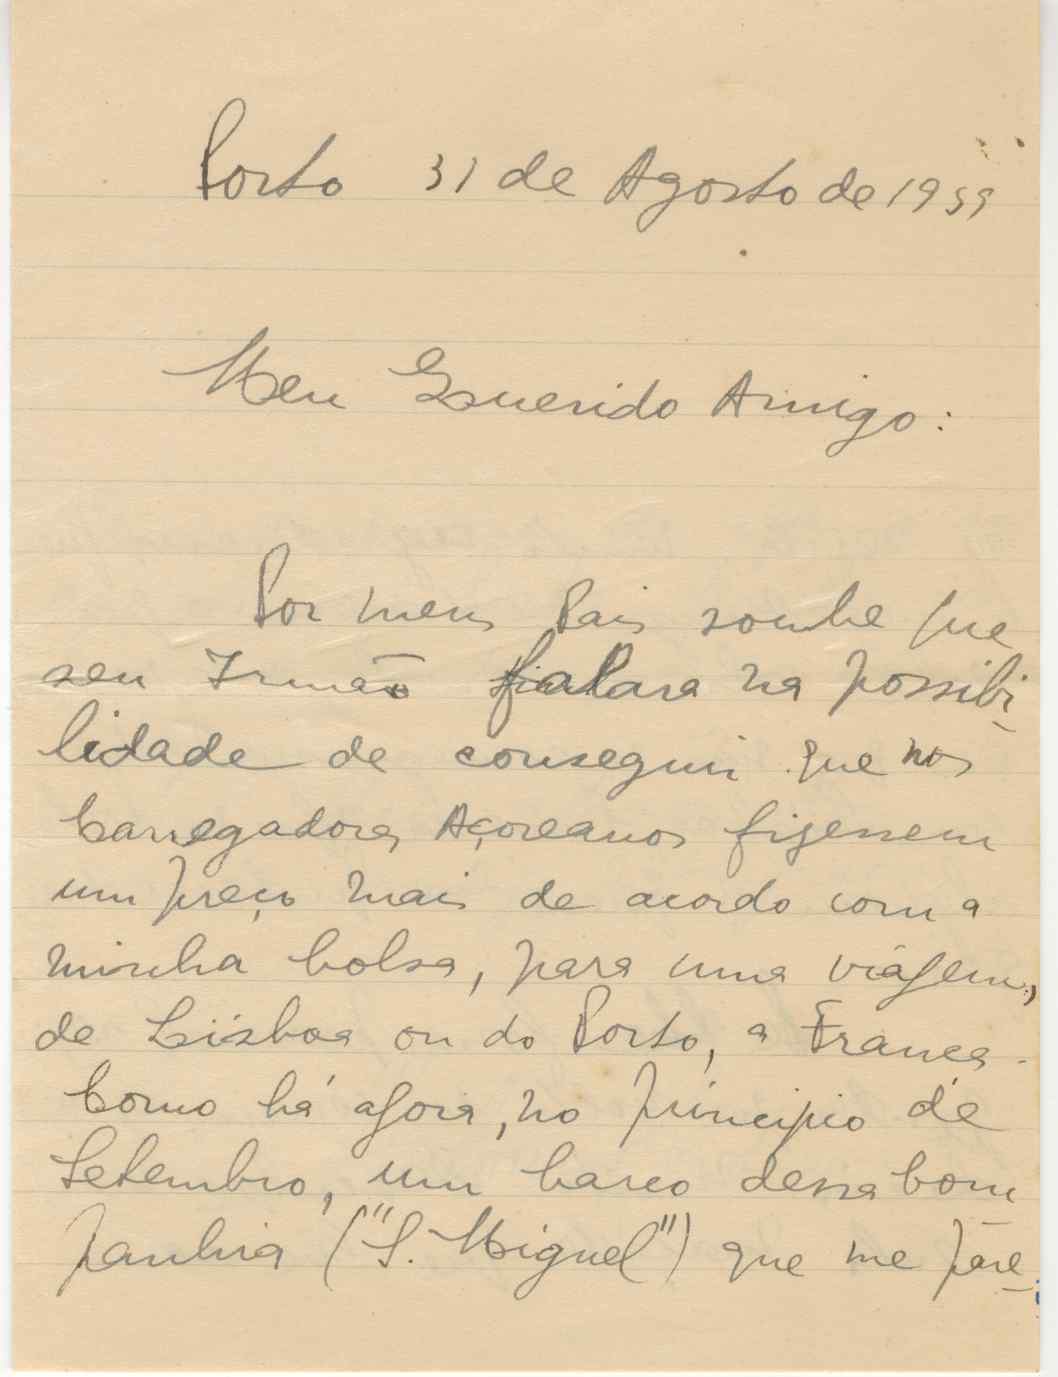 Porto 31 de Agosto de 1959
Meu Querido Amigo:
Por meus Pais soube que
seu Irmão falara na possibi-
lidade de conseguir que nos
Carregadores Açoreanos fizessem
um preço mais de acordo com a
minha bolsa, para uma viágem,
de Lisboa ou do Porto, a França.
Como há agora, no principio de
Setembro, um barco dessa Com
panhia ("S. Miguel") que me pare-